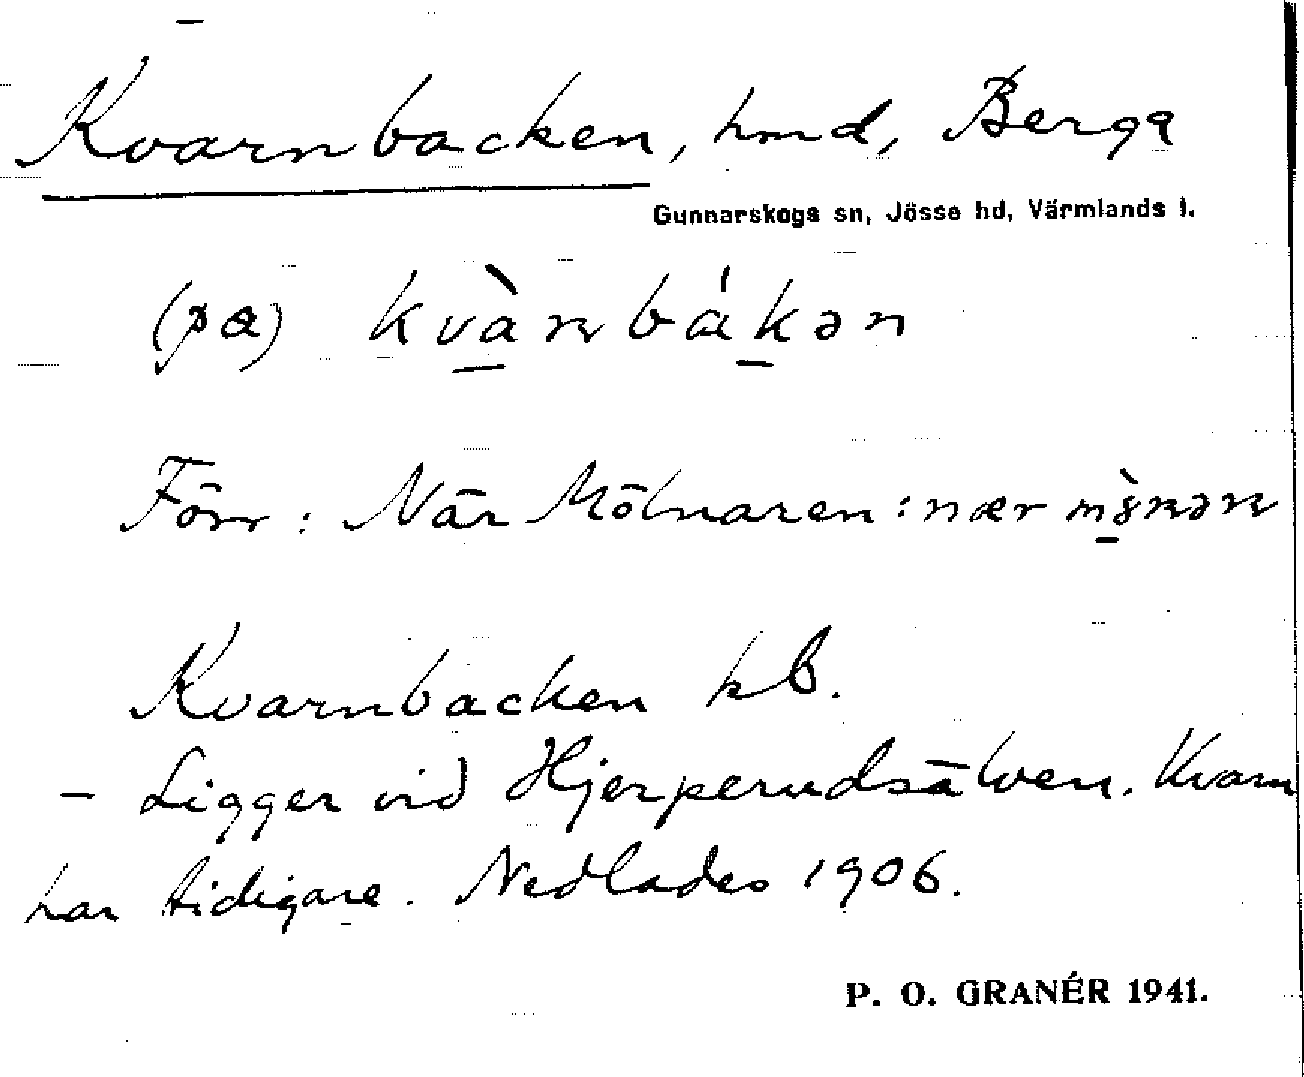 Kvarnbacken, hmd, Berga
Gunnarskogs sn, Jösse hd, Värmlands l.
(pa) kvànbákən
Förr: När Mölnaren: nær
Kvarnbacken kb.
– Ligger vid Hjerperudsälven. Kvarn
har tidigare. Nedlades 1906.
P. O. GRANÉR 1941.